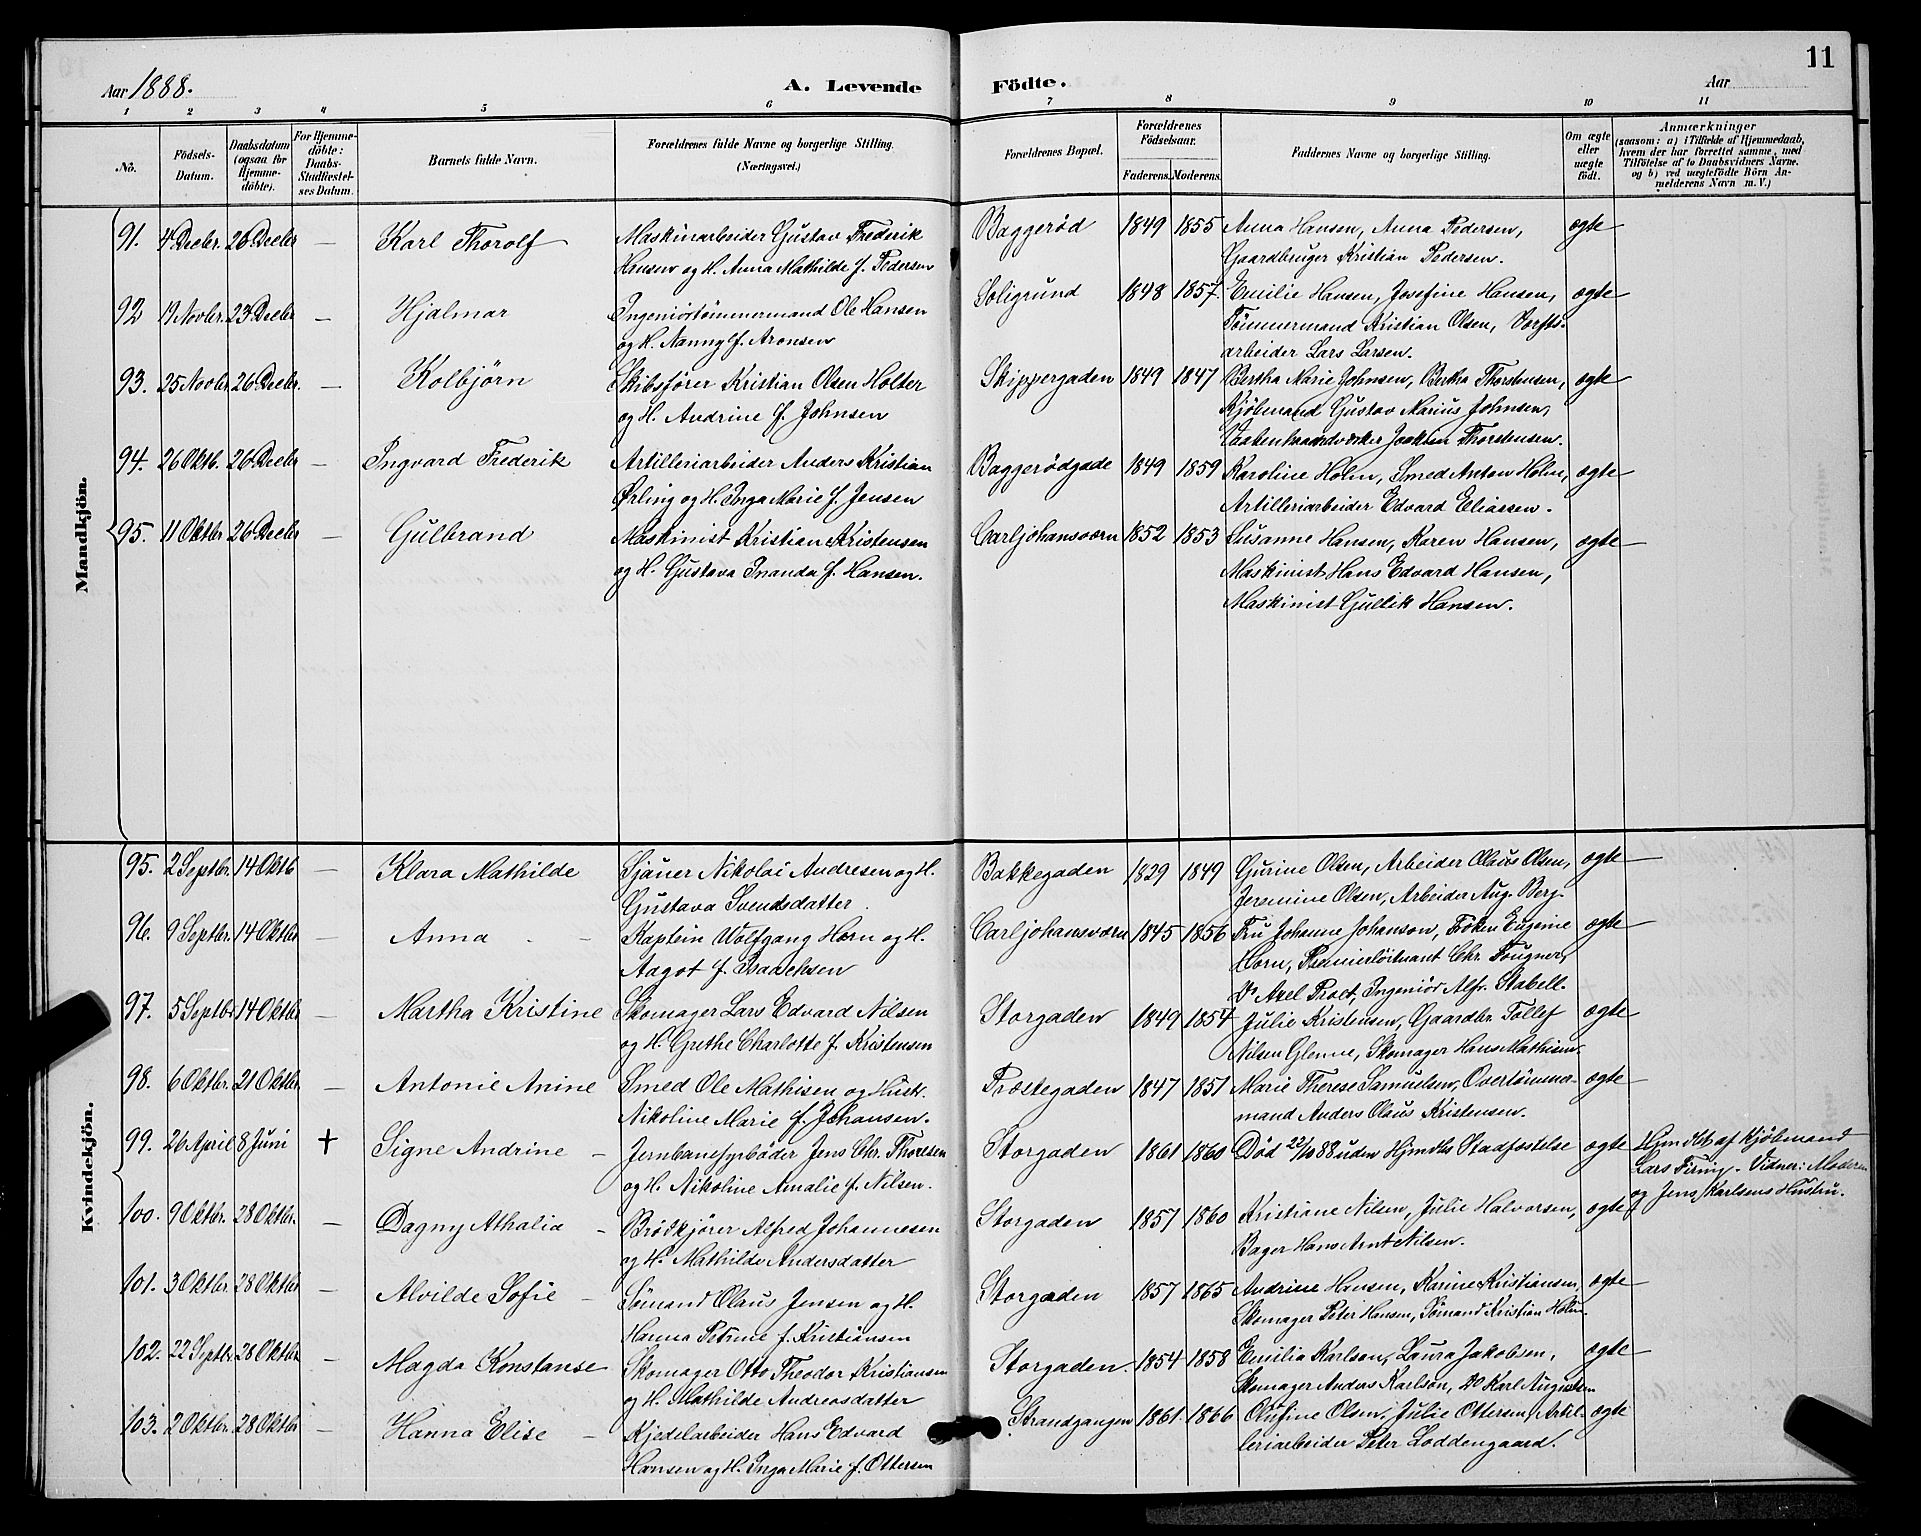 11
Aar 1888.
A. Levende
Födte.
Aar
1 2 3 4 5 6 7 8 9 10 11
No.
Födsels-
Datum.
Daabsdatum
(ogsaa for
Hjemme-
döbte).
For Hjemme-
döbte:
Daabs-
Stadfæstel-
ses Datum.
Barnets fulde Navn.
Forældrenes fulde Navne og borgerlige Stilling.
(Næringsvei.)
Forældrenes Bopæl.
Forældrenes
Födselsaar.
Faderens. Moderens.
Faddernes Navne og borgerlige Stilling.
Om ægte
eller
uægte
födt.
Anmærkninger
(saasom: a) i Tilfælde af Hjemmedaab,
hvem der har forrettet samme, med
Tilföielse af to Daabsvidners Navne.
og b) ved uægtefödte Börn An-
melderens Navn m. V.)
Mandkjön.
91. 4 Decbr. 26 Decbr — Karl Thorolf
Maskinarbeider Gustav Frederik
Hansen og H. Anna Mathilde f. Pedersen
Baggerød 1849 1855
Anna Hansen, Anna Pedersen,
Gaardbruger Kristian Pedersen.
ægte
92 19 Novbr. 23 Decbr — Hjalmar
Ingeniörtömmermand Ole Hansen
og H. Nanny f. Aronsen
Soligrund 1848 1857
Emilie Hansen, Josefine Hansen,
Tömmermand Kristian Olsen, Verfts-
arbeider Lars Larsen.
ægte
93. 25 Novbr. 26 Decbr — Kolbjörn
Skibsfører Kristian Olsen Holter
og H. Andrine f. Johnsen
Skippergaden 1849 1847
Bertha Marie Johnsen, Bertha Thorstensen,
Kjöbmand Gustav Marius Johnsen,
Vaabenhaandverker Joakim Thorstensen.
ægte
94. 26 Oktb. 26 Decbr — Ingvard Frederik
Artilleriarbeider Anders Kristian
Ørling og H. Inga Marie f. Jensen
Baggerødgade 1849 1859
Karoline Holm, Smed Anton Holm,
Artilleriarbeider Edvard Eliassen.
ægte
95. 11 Oktbr 26 Decbr — Gulbrand
Maskinist Kristian Kristensen
og H. Gustava Inanda f. Hansen.
Carljohansværn 1852 1853
Susanne Hansen, Karen Hansen,
Maskinist Hans Edvard Hansen,
Maskinist Gullik Hansen.
ægte
Kvindekjön.
95. 2 Septbr. 14 Oktb — Klara Mathilde
Sjauer Nikolai Andresen og H.
Gustava Svendsdatter.
Bakkegaden 1829 1849
Gurine Olsen, Arbeider Olaus Olsen,
Jeremine Olsen, Arbeider Aug. Berg.
ægte
96. 9 Septbr. 14 Oktbr — Anna
Kaptein Wolfgang Horn og H.
Aagot f. Isaachsen
Carljohansværn 1845 1856
Fru Johanne Johanson, Frøken Eugenie
Horn, Premierløitnant Chr. Fougner,
Do Axel Proet, Ingeniör Alfr. Stabell.
ægte
97. 5 Septbr 14 Oktbr — Martha Kristine
Skomager Lars Edvard Nilsen
og H. Grethe Charlotte f. Kristensen
Storgaden 1849 1854
Julie Kristensen, Gaardbr. Tollef
Nilsen Glenne, Skomager Hans Mathisen.
ægte
98. 6 Oktbr. 21 Oktbr. — Antonie Anine
Smed Ole Mathisen og Hustr.
Nikoline Marie f. Johansen.
Præstegaden 1847 1851
Marie Therese Samuelsen, Overtömmer-
mand Anders Olaus Kristensen.
ægte
99. 26 April 8 Juni † Signe Andrine
Jernbanefyrbøder Jens Chr. Thoresen
og H. Nikoline Amalie f. Nilsen.
Storgaden 1861 1860
Död 22/10 88 uden Hjmdbs Stadfæstelse
ægte
Hjmdbt af Kjöbmand
Lars Firing. Vidner: Moderen
og Jens Karlsens Hustru.
100. 9 Oktbr. 28 Oktbr. — Dagny Athalia
Brödkjörer Alfred Johannesen
og H. Mathilde Andersdatter
Storgaden 1857 1860
Kristiane Nilsen, Julie Halvorsen,
Bager Hans Arnt Nilsen.
ægte
101. 3 Oktbr. 28 Oktbr — Alvilde Sofie
Sömand Olaus Jensen og H.
Hanna Petrine f. Kristiansen
Storgaden 1857 1865
Andrine Hansen, Karine Kristiansen,
Skomager Peter Hansen, Sömand Kristian Holm.
ægte
102. 22 Septbr. 28 Oktbr — Magda Konstanse
Skomager Otto Theodor Kristiansen
og H. Mathilde Andreasdatter
Storgaden 1854 1858
Emilia Karlson, Laura Jakobsen,
Skomager Anders Karlson, Do Karl Augustsen
ægte
103. 2 Oktbr. 28 Oktbr — Hanna Elise
Kjedelarbeider Hans Edvard
Hansen og H. Inga Marie f. Ottersen
Strandgangen 1861 1866
Olufine Olsen, Julie Ottersen, Artil-
leriarbeider Peter Loddengaard.
ægte